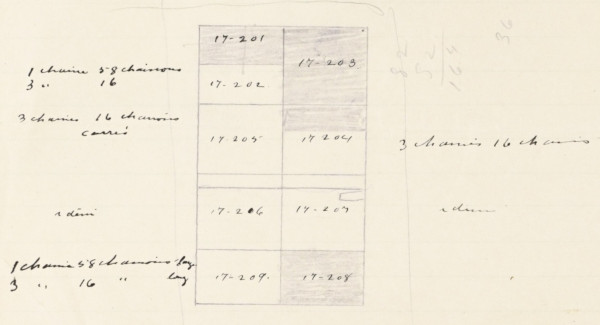 17-201
17-203
1 chaine 58 chainons
3 " 16
17-202
3 chaines 16 chainons
carrés
17-205
17-204
3 chaines 16 chainons
idem
17-206
17-207
idem
1 chaine 58 chainons larg.
3 " 16 " long
17-209
17-208